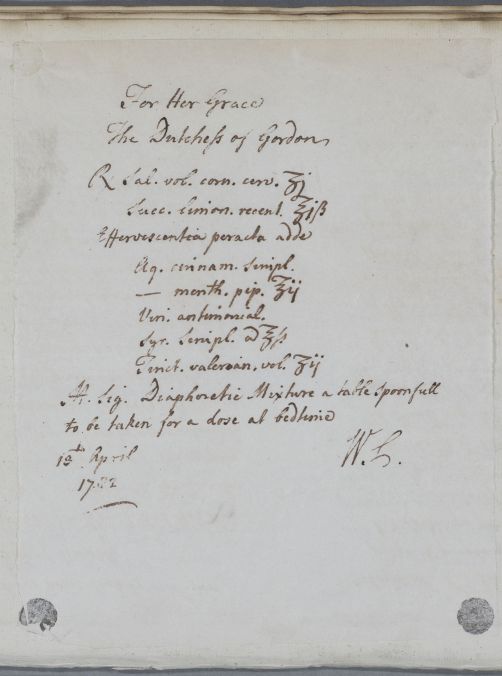 For Her Grace
The Dutchess of Gordon
℞ Sal. vol. corn. cerv. ʒj
Succ. Limon. recent. ℥jß
Effervescentia peracta adde
Aq. cinnam. simpl.
— menth. pip. ℥ij
Vini. antimonial.
Syr. Simpl. a ℥ß
Tinct. valerian. vol. ʒij
M. Sig. Diaphoretic Mixture a table spoonfull
to be taken for a dose at bedtime
April
W.